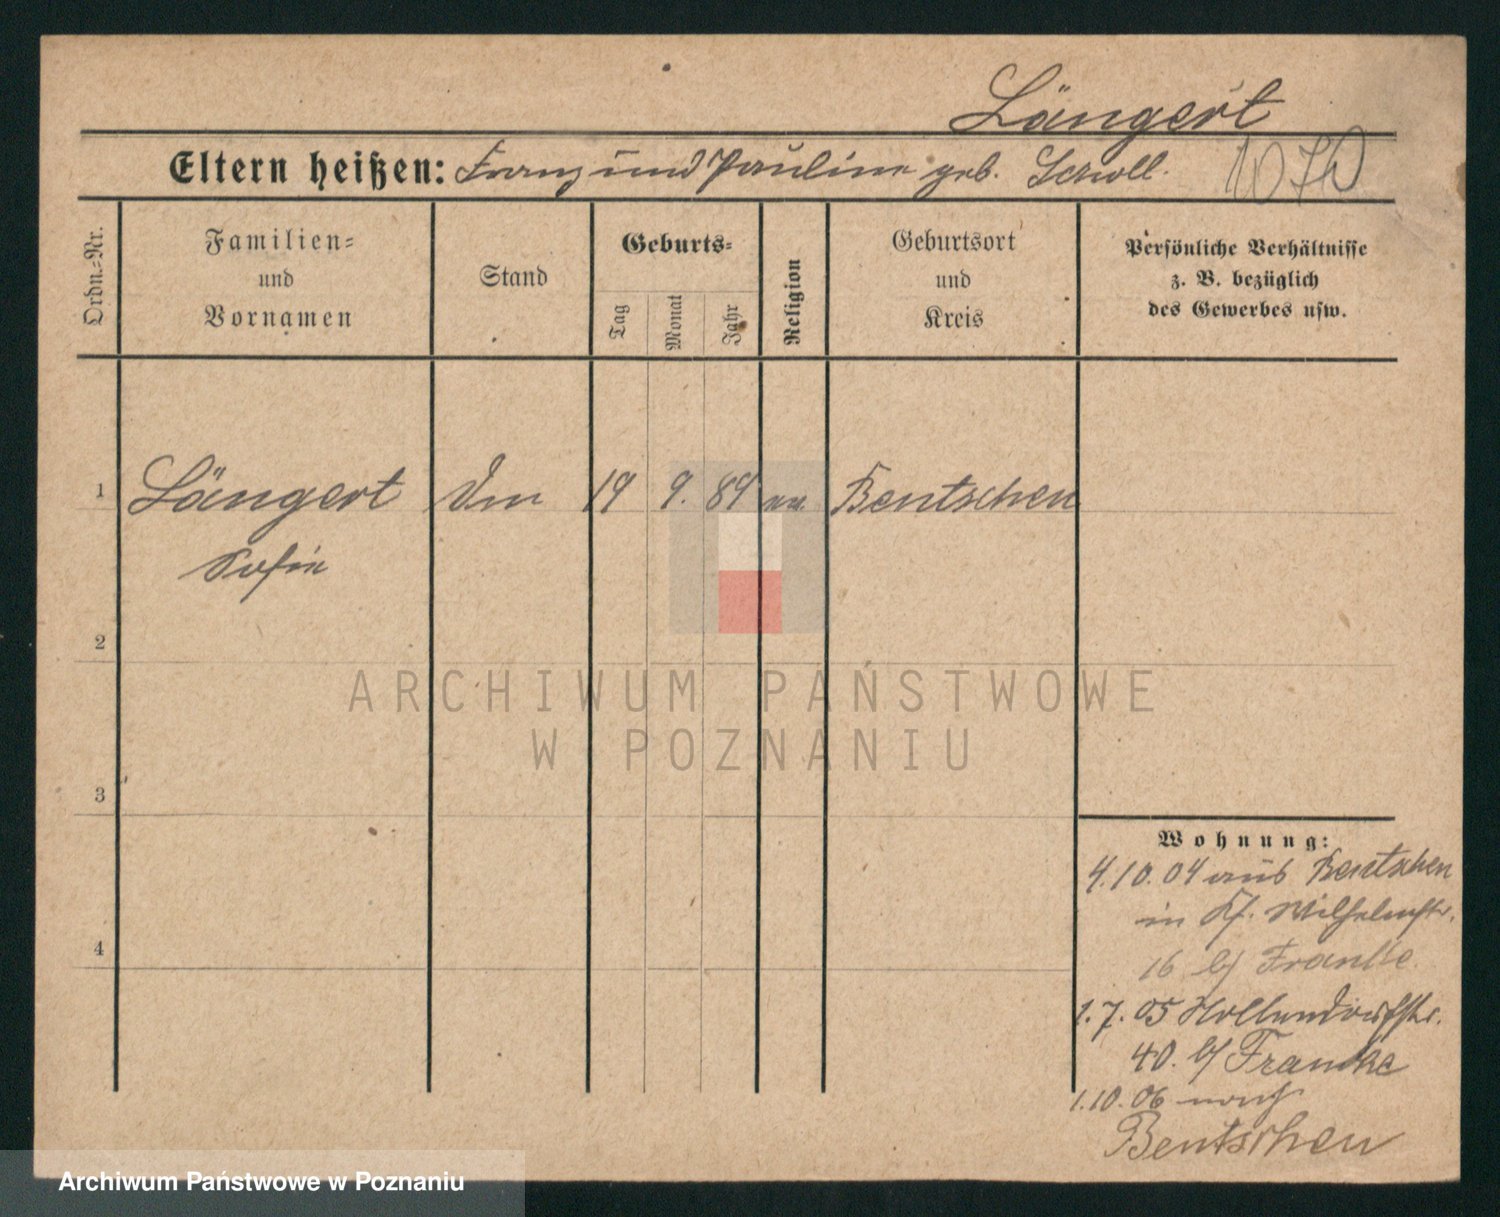 Längert
Eltern heißen: Franz und Pauline geb. Scholl.
Ordn.-Nr.
Familien-
und
Vornamen
Stand
Geburts-
Tag
Monat
Jahr
Religion
Geburtsort
und
Kreis
Persönliche Verhältnisse
z. B. bezüglich
des Gewerbes usw.
1 Längert 19 9. 89 Bentschen
Sofie
2
ARCHIWUM PAŃSTWOWE
W POZNANIU
3
Wohnung:
4.10.04 aus Bentschen
in Wilhelmstr.
16 b/ Franke
4
1.7.05 Hollendorfstr.
40. b/ Francke
1.10.06 nach
Bentschen
Archiwum Państwowe w Poznaniu